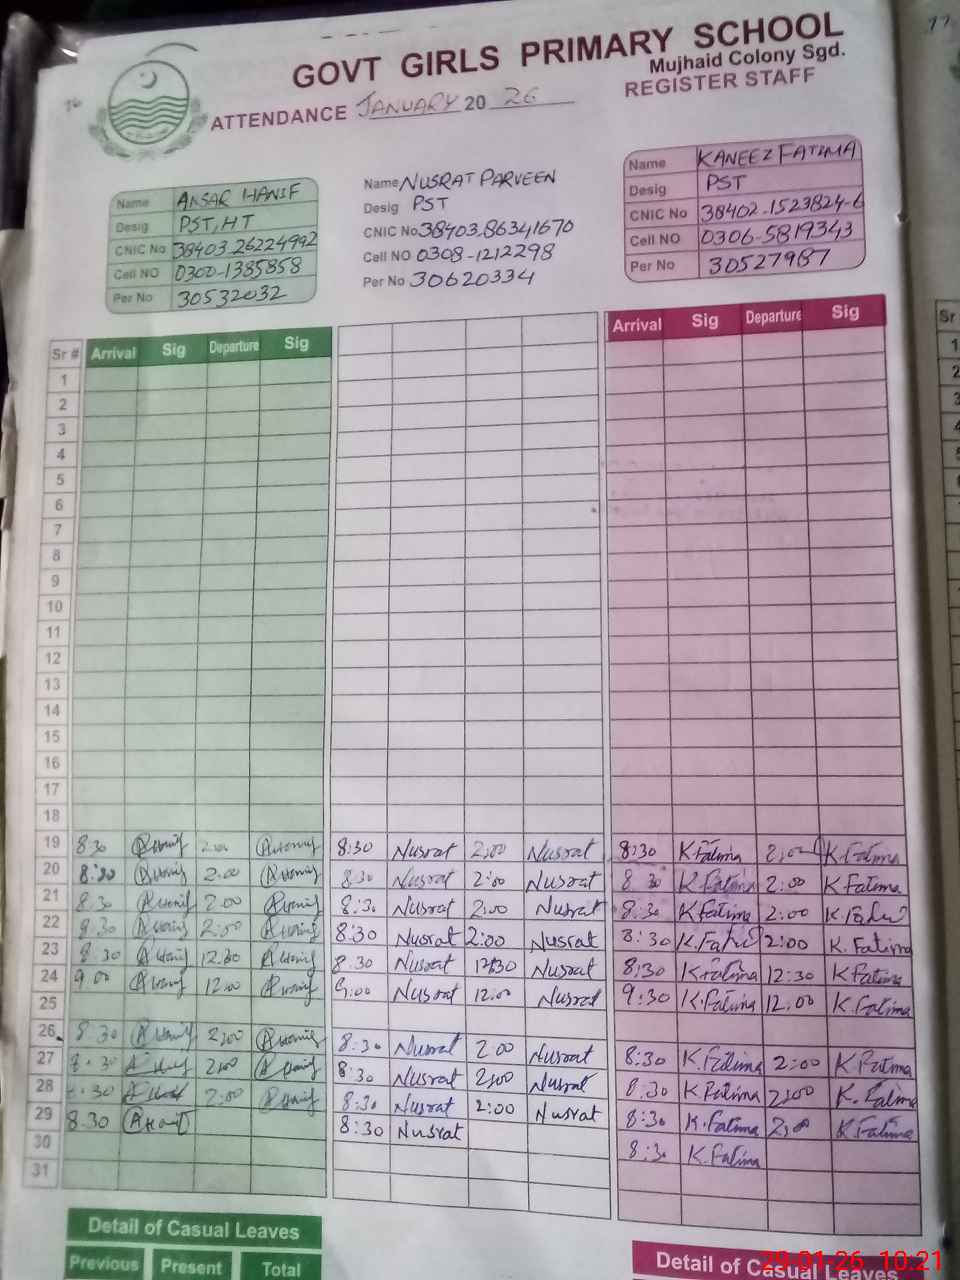 GOVT GIRLS PRIMARY SCHOOL
Mujhaid Colony Sgd.
ATTENDANCE JANUARY 20 26 REGISTER STAFF
Name ANSAR HANIF
Desig PST, HT
CNIC No 38403.26224992
Cell NO 0300-1385858
Per No 30532032
Name NUSRAT PARVEEN
Desig PST
CNIC No 38403.86341670
Cell NO 0308-1212298
Per No 30620334
Name KANEEZ FATIMA
Desig PST
CNIC No 38402-1523824-6
Cell NO 0306-5819343
Per No 30527987
Sr # Arrival Sig Departure Sig Arrival Sig Departure Sig
1
2
3
4
5
6
7
8
9
10
11
12
13
14
15
16
17
18
19 8:30 Nusrat 2:00 Nusrat 8:30 K Fatima 2:00 K Fatima
20 8:30 2:00 8:30 Nusrat 2:00 Nusrat 8:30 K Fatima 2:00 K Fatima
21 8:30 2:00 8:30 Nusrat 2:00 Nusrat 8:30 K Fatima 2:00
22 8:30 2:00 8:30 Nusrat 2:00 Nusrat 8:30 2:00 K. Fatima
23 8:30 12:30 8:30 Nusrat 12:30 Nusrat 8:30 K Fatima 12:30 K Fatima
24 9:00 12:00 9:00 Nusrat 12:00 Nusrat 9:30 K. Fatima 12:00 K. Fatima
25
26 8:30 2:00 8:30 Nusrat 2:00 Nusrat 8:30 K. Fatima 2:00 K. Fatima
27 8:30 2:00 8:30 Nusrat 2:00 Nusrat 8:30 K. Fatima 2:00 K. Fatima
28 8:30 2:00 8:30 Nusrat 2:00 Nusrat 8:30 K. Fatima 2:00 K Fatima
29 8:30 8:30 Nusrat 8:30 K. Fatima
30
31
Detail of Casual Leaves
Previous Present Total
Detail of Casual Leaves
29-01-26 10:21